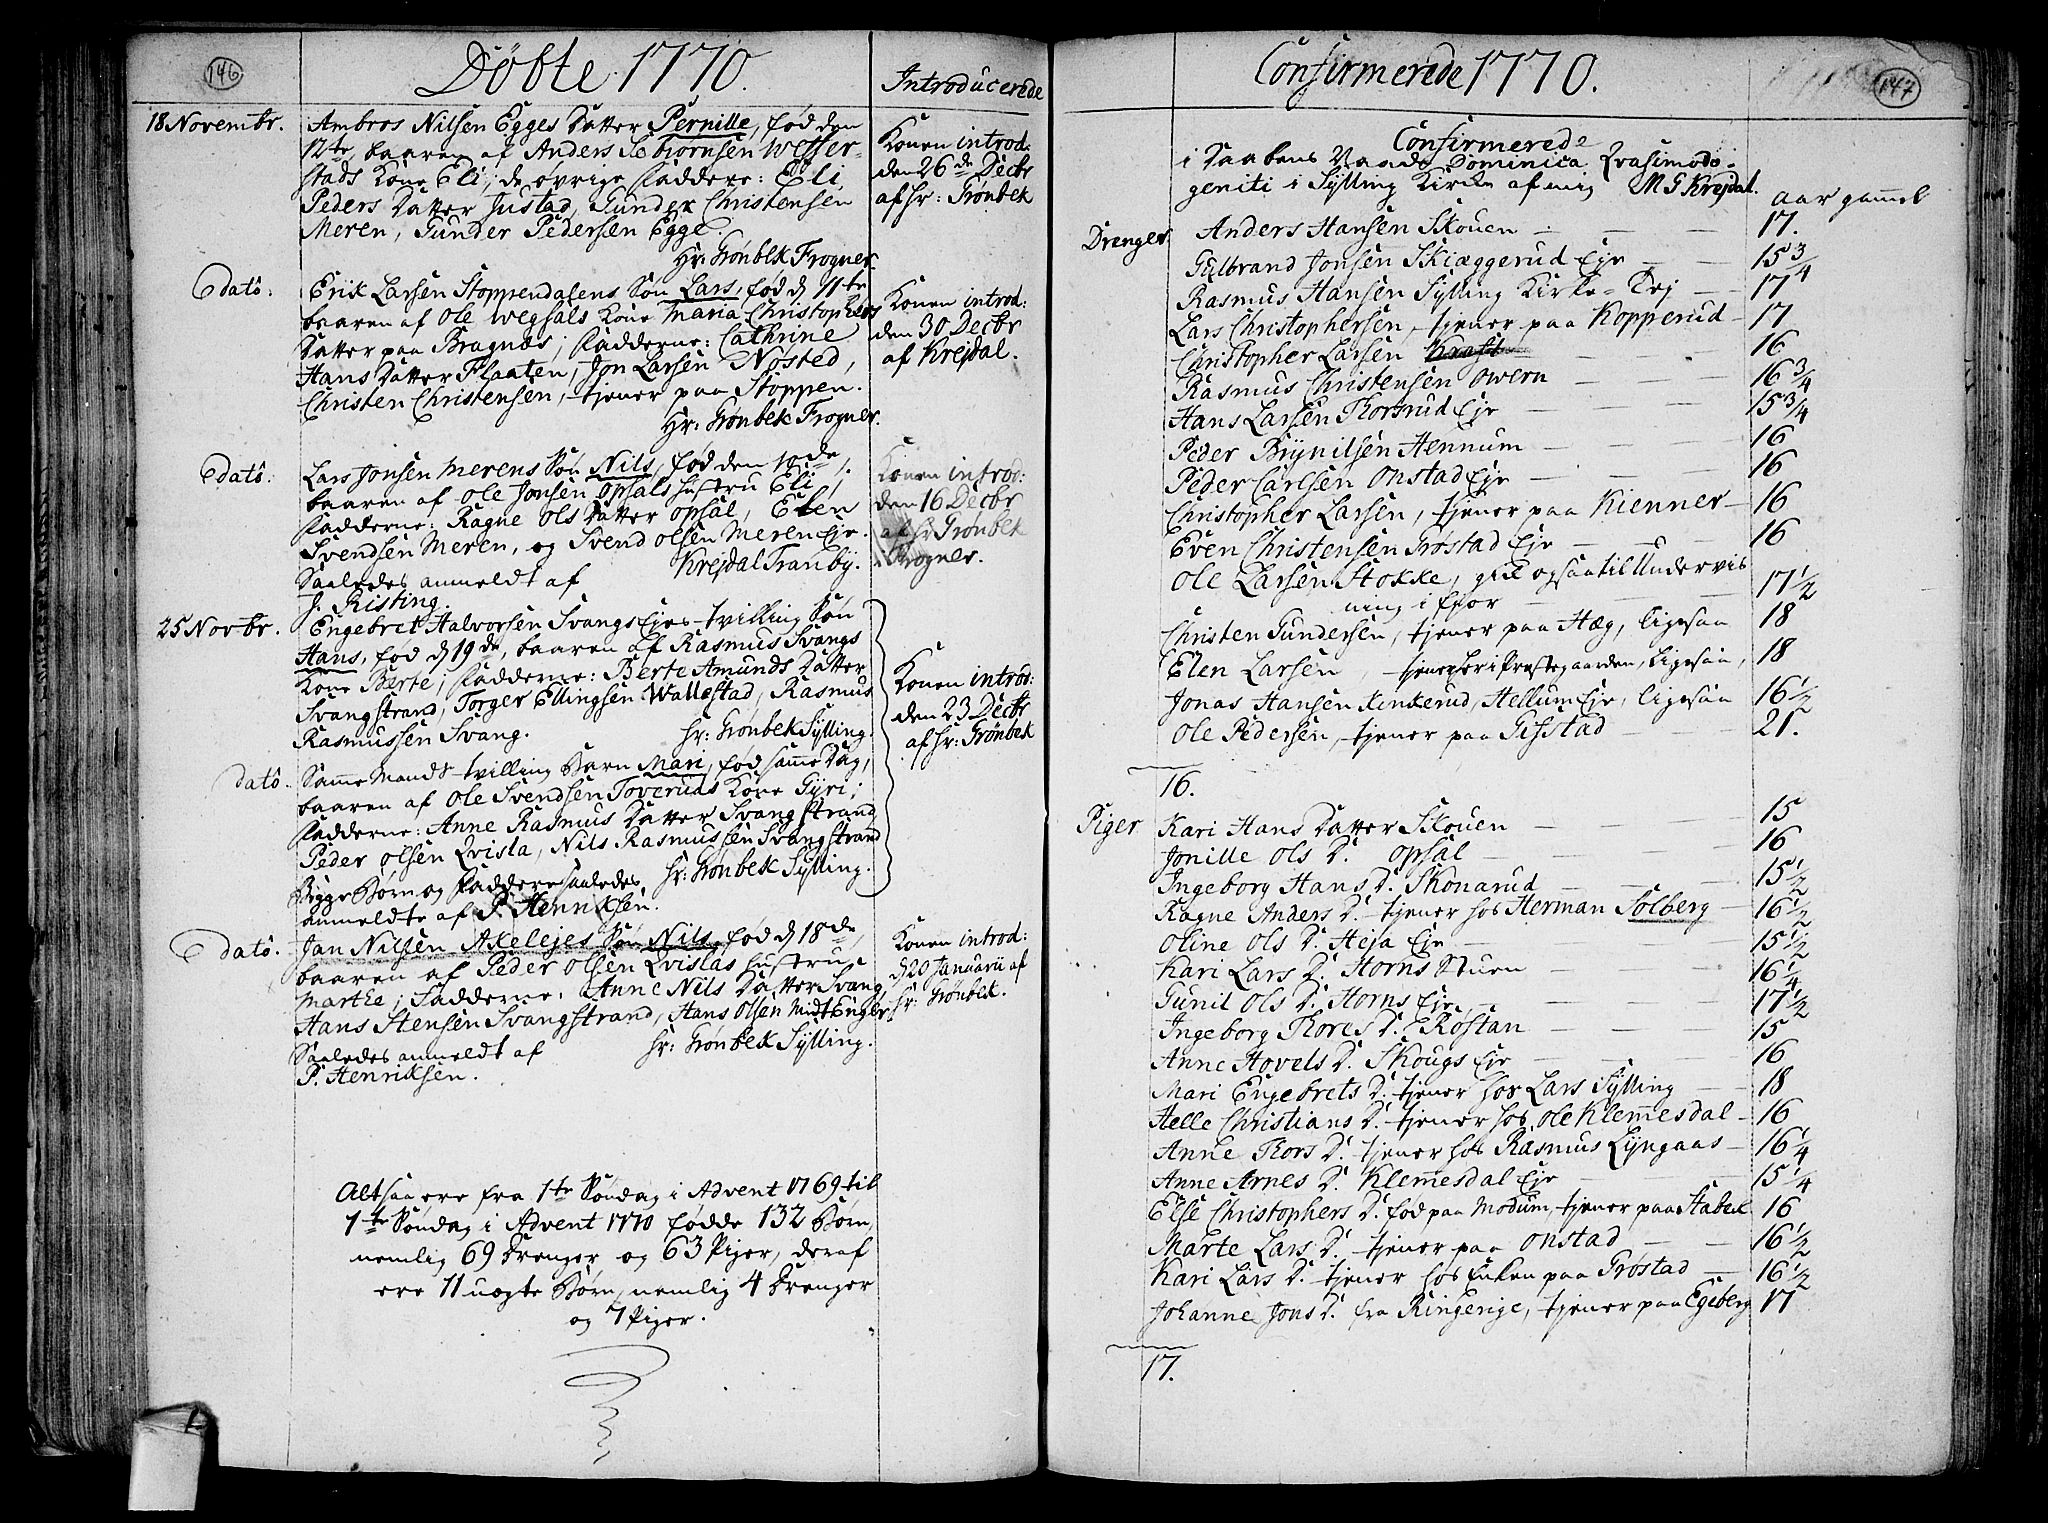 146
Döbte 1770.
Introducerede
18 Novembr.
Ambros Nilsen Egges Datter Pernille, fød den
12te, baaren af Anders Sebjörnsen Wefser-
stads Kone Eli; de øvrige Fadderne: Eli
Peders Datter Justad, Gunder Christensen
Meren, Gunder Pedersen Egge.
Hr: Grönbek Frogner.
Konen introd:
den 26de Decbr
af Hr: Grönbek
E dato.
Erik Larsen Stoppendalens Søn Lars, fød d 11te
baaren af Ole Wegsals Kone Maria Christophers
Datter paa Bragnæs; Fadderne: Cathrine
Hans Datter Flaaten, Jon Larsen Nøsted,
Christen Christensen, tjener paa Stoppen.
Hr: Grönbek Frogner.
Konen introd:
den 30 Decbr
af Krejdal.
E dato.
Lars Jonsen Merens Søn Nils, fød den 10de,
baaren af Ole Jonsen Opsals Hustru Eli;
Fadderne: Ragne Ols Datter Opsal, Even
Svendsen Meren, og Svend Olsen Meren Eje.
Saaledes anmeldt af Krejdal Tranby.
J. Kisting.
Konen introd:
den 16 Decbr
af Hr Grönbek
i Frogner.
25 Novbr.
Engebret Halvorsen Svangs Ejes tvilling Søn
Hans, fød d 19de, baaren af Rasmus Svangs
Kone Berte; Fadderne: Berte Amunds Datter
Svangstrand, Torger Ellingsen Wallestad, Rasmus
Rasmussen Svang. Hr: Grönbek Sylling.
Konen introd:
den 23 Decbr
af Hr: Grönbek
dato.
Samme Mands tvilling Barn Mari, fød samme Dag,
baaren af Ole Svendsen Toveruds Kone Gyri;
Fadderne: Anne Rasmus Datter Svangstrand
Peder Olsen Qvisla, Nils Rasmussen Svangstrand
Bigge Børn og Faddere saaledes Hr: Grönbek Sylling.
anmeldte af P. Henriksen.
E dato.
Jan Nilsen Axelejes Søn Nils, fød d 18de,
baaren af Peder Olsen Qvislas Hustru
Marthe; Fadderne: Anne Nils Datter Svang
Hans Stensen Svangstrand, Hans Olsen MidtEnger
Saaledes anmeldt af Hr: Grönbek Sylling.
P. Henriksen.
Konen introd:
d 20 Januarii af
Hr: Grönbek.
Altsaa ere fra 1te Søndag i Advent 1769 til
1te Søndag i Advent 1770 fødde 132 Børn,
nemlig 69 Drenger og 63 Piger, deraf
ere 11 uægte Børn, nemlig 4 Drenger
og 7 Piger.
147
Confirmerede 1770.
Confirmerede
i Daabens Naade Dominica Qvasimodo-
geniti i Sylling Kirke af mig MG Krejdal.
aar gammel
Drenger
Anders Hansen Skouen — 17.
Gulbrand Jonsen Skiæggerud Eje — 15 3/4
Rasmus Hansen Sylling Kirke-Eej — 17
Lars Christophersen, tjener paa Kopperud — 17
Christopher Larsen — 16
Rasmus Christensen Owern — 16 3/4
Hans Larsen Thorsrud Eje — 15 3/4
Peder Brynilsen Hennum — 16
Peder Carlsen Onstad Eje — 16
Christopher Larsen, tjener paa Kienner — 16
Even Christensen Grøstad Eje — 16
Ole Larsen Stokke, gik ogsaa til Undervis
ning i fjor — 17 1/2
Christen Gundersen, tjener paa Hæg, ligesaa 18
Elen Larsen, tjener her i Præstegaarden, Ligesaa, 18
Jonas Hansen Kinkerud, Hellum Eje, ligesaa 16 1/2
Ole Pedersen, tjener paa Gifstad — 21.
16.
Piger
Kari Hans Datter Skouen — 15
Jonille Ols D. Opsal — 16
Ingeborg Hans D. Skonarud — 15 1/2
Ragne Anders D. tjener hos Herman Solberg — 16 1/2
Oline Ols D. Heja Eje — 15 1/2
Kari Lars D. Horns Stuen — 16 1/4
Gunil Ols D. Horns Eje — 17 1/2
Ingeborg Thores D. Rostan — 15
Anne Hovels D. Skougs Eje — 16
Mari Engebrets D. tjener hos Lars Sylling — 18
Helle Christians D. tjener hos Ole Klemmesdal — 16
Anne Thors D. tjener hos Rasmus Lyngaas — 16 1/4
Anne Arnes D. Klemmesdal Eje — 15 1/4
Else Christophers D. fød paa Modum, tjener paa Stabek 16
Marte Lars D. tjener paa Onstad — 16 1/2
Kari Lars D. tjener hos Enken paa Grøstad — 16 1/2
Johanne Jons D. fra Ringerige, tjener paa Egeberg 17
17.